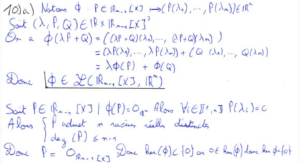 10)a) Notons ϕ : P ∈ ℝₙ₋₁[X] ↦ (P(λ₁), ..., P(λₙ)) ∈ ℝⁿ
Soit (λ, P, Q) ∈ ℝ × ℝₙ₋₁[X]²
On a ϕ(λP + Q) = ((λP + Q)(λ₁), ..., (λP + Q)(λₙ))
= (λP(λ₁), ..., λP(λₙ)) + (Q(λ₁), ..., Q(λₙ))
= λϕ(P) + ϕ(Q)
Donc ϕ ∈ ℒ(ℝₙ₋₁[X], ℝⁿ)
Soit P ∈ ℝₙ₋₁[X] | ϕ(P) = 0 Alors ∀i ∈ ⟦1,n⟧ P(λᵢ) = 0
Alors { P admet n racines réelles distinctes
deg(P) ≤ n-1
Donc P = 0 ℝₙ₋₁[X] Donc Ker(ϕ) ⊂ {0} or 0 ∈ Ker(ϕ) donc